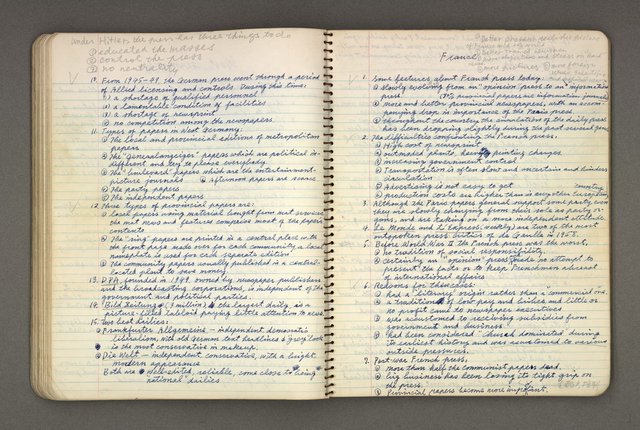 Under Hitler, the press has three things to do
① educated the masses
② control the press
③ no neutrality
10. From 1945-49, the German press went through a period
of Allied licensing and controls. During this time:
1) a shortage of qualified personnel
2) a lamentable condition of facilities
3) a shortage of newsprint
④ no competition among the newspapers
11. Types of papers in West Germany:
① The local and provincial editions of metropolitan
papers
② The "Generalanzeiger" papers which are political in-
different and try to please everybody
③ The "boulevard" papers which are the entertainment-
picture journals ④ afternoon papers are scarce
⑤ The party papers
⑥ The independent papers
12. Three types of provincial papers are:
① Local papers using material bought from mat services
the mat news and features comprise most of the papers
contents
② The "ring" papers are printed in a central place with
the front page made over for each community, a local
nameplate is used for each separate edition
③ The community papers usually published in a central-
located plant to save money
13. DPA, founded in 1949, owned by newspaper publishers
and the broadcasting corporations, is independent of the
government and political parties.
14. "Bild Zeitung" (3 million), the largest daily, is a
picture-filled tabloid paying little attention to news
15. Two best dailies:
① Frankfurter Allgemeine - independent democratic
liberalism, with old German text headlines & gray look
is the most conservative in makeup.
② Die Welt - independent conservative, with a bright
modern appearance
Both are well-edited, reliable, come close to being
national dailies
France
1. Some features about French press today:
① slowly evolving from an "opinion" press to an "information
press"
② more and better provincial newspapers, with an accom-
panying drop in importance of the Paris press
③ throughout the country, the circulation of the daily press
has been dropping slightly during the past several years
2. The difficulties confronting the French press:
① High cost of newsprint
② outmoded plants, heavy printing charges
③ increasing government control
④ Transportation is often slow and uncertain and hinders
circulation
⑤ advertising is not easy to get
⑥ production costs are higher than in any other European country
3. Although the Paris papers generally support some party
they are slowly changing from their role as party or-
gans, and are taking on a more independent attitude.
4. Le Monde and L'Express (weekly) are two of the most
outspoken press critics of de Gaulle in 1962.
5. Before World War II the French press was the worst.
① no tradition of social responsibility
② certainly an "opinion" press, made no attempt to
present the facts or to keep Frenchmen abreast
of international affairs
6. Reasons for these were:
① had a "literary" origin rather than a commercial one
② a tradition of low pay and bribes and little or
no profit came to newspaper executives
③ was accustomed to receiving subsidies from
government and business
④ had been considered dominated during
its earliest history and was accustomed to various
outside pressures.
7. Post war French press.
① more than half the communist papers dead
② big business has been losing its tight grip on
the press
③ Provincial papers become more important.